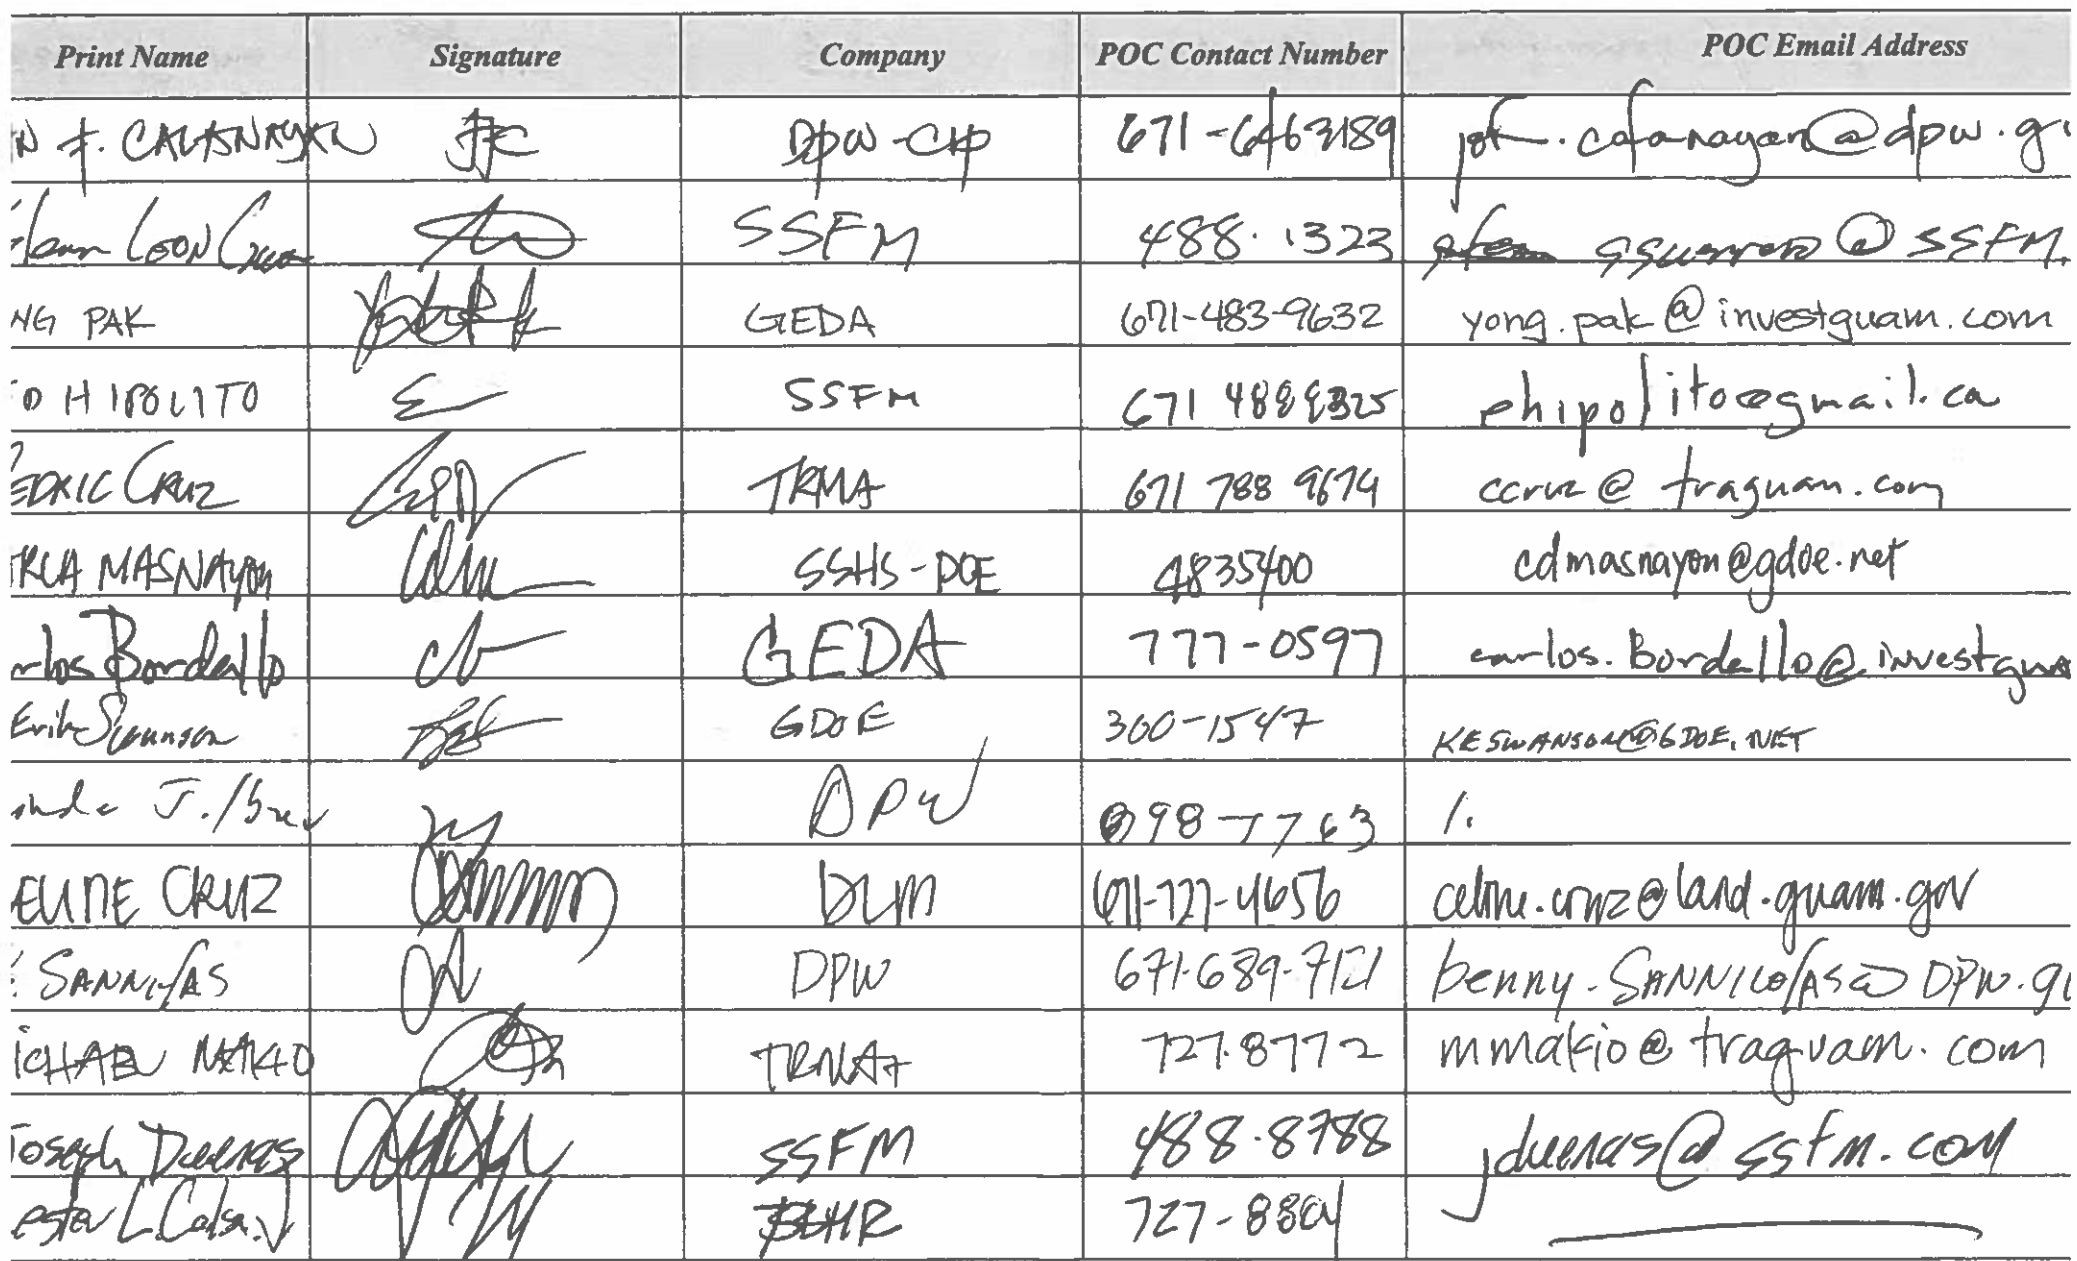 Print Name Signature Company POC Contact Number POC Email Address
N J. CALANAYAN JJC DPW-CIP 671-6463189 john.calanayan@dpw.g
Leon SSFM 488.1323 @SSFM.
NG PAK GEDA 671-483-9632 yong.pak@investguam.com
D HIPOLITO SSFM 671 ehipolito@gmail.co
EDRIC CRUZ TRMA 671 788 9674 ccruz@traguam.com
RLA MASNAYON SSHS-DOE 4835400 cdmasnayon@gdoe.net
rlos Bordallo GEDA 777-0597 carlos.Bordallo@investgua
Erik Swanson GDOE 300-1547 KESWANSON@GDOE.NET
J. DPW 898-7763
ELINE CRUZ DLM 671-727-4656 celine.cruz@land.guam.gov
SANNICOLAS DPW 671-689-7121 benny.SANNICOLAS@DPW.gu
ICHAEL MAKIO TRMA 727.8772 mmakio@traguam.com
Joseph Duenas SSFM 488.8788 jduenas@ssfm.com
ester L. 727-8801